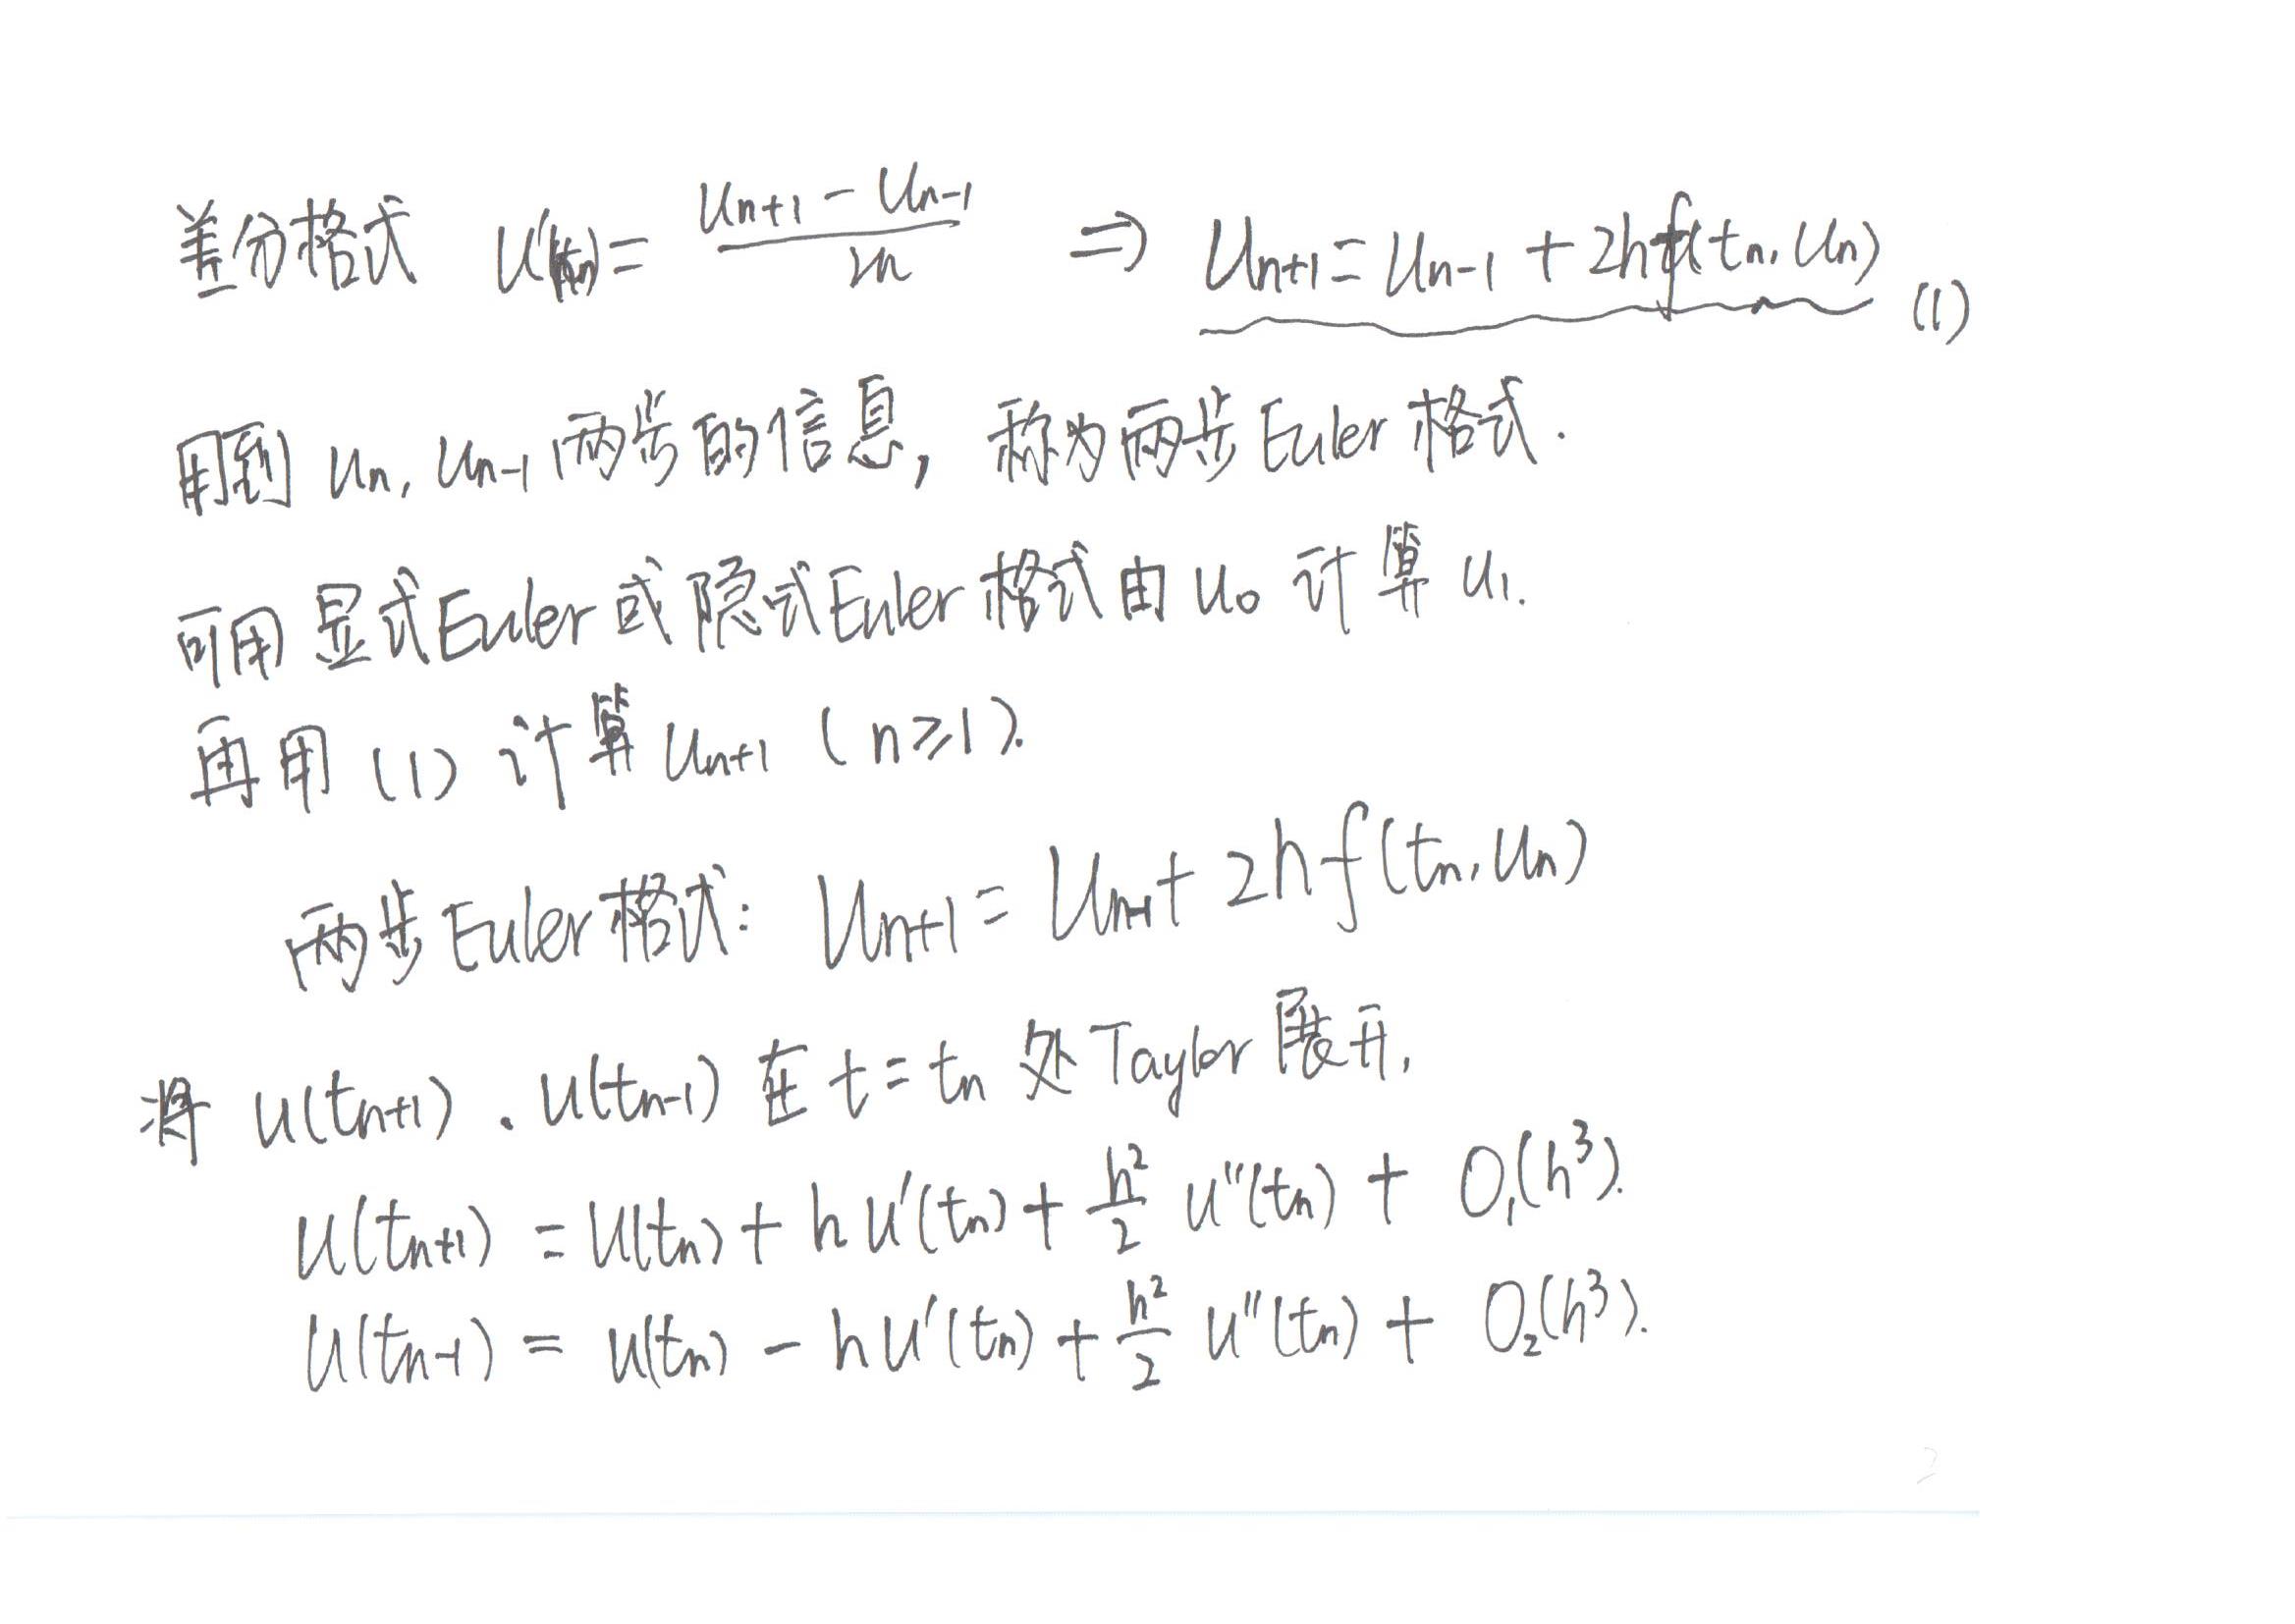 差分格式 u'(tn) = (un+1 - un-1) / 2h ⇒ un+1 = un-1 + 2hf(tn, un) (1)
用到 un, un-1 两步的信息, 称为两步Euler格式.
可用显式Euler或隐式Euler格式由 u0 计算 u1.
再用 (1) 计算 un+1 (n≥1).
两步Euler格式: un+1 = un-1 + 2hf(tn, un)
将 u(tn+1). u(tn-1) 在 t = tn 处Taylor展开,
u(tn+1) = u(tn) + hu'(tn) + h²/2 u''(tn) + O₁(h³).
u(tn-1) = u(tn) - hu'(tn) + h²/2 u''(tn) + O₂(h³).